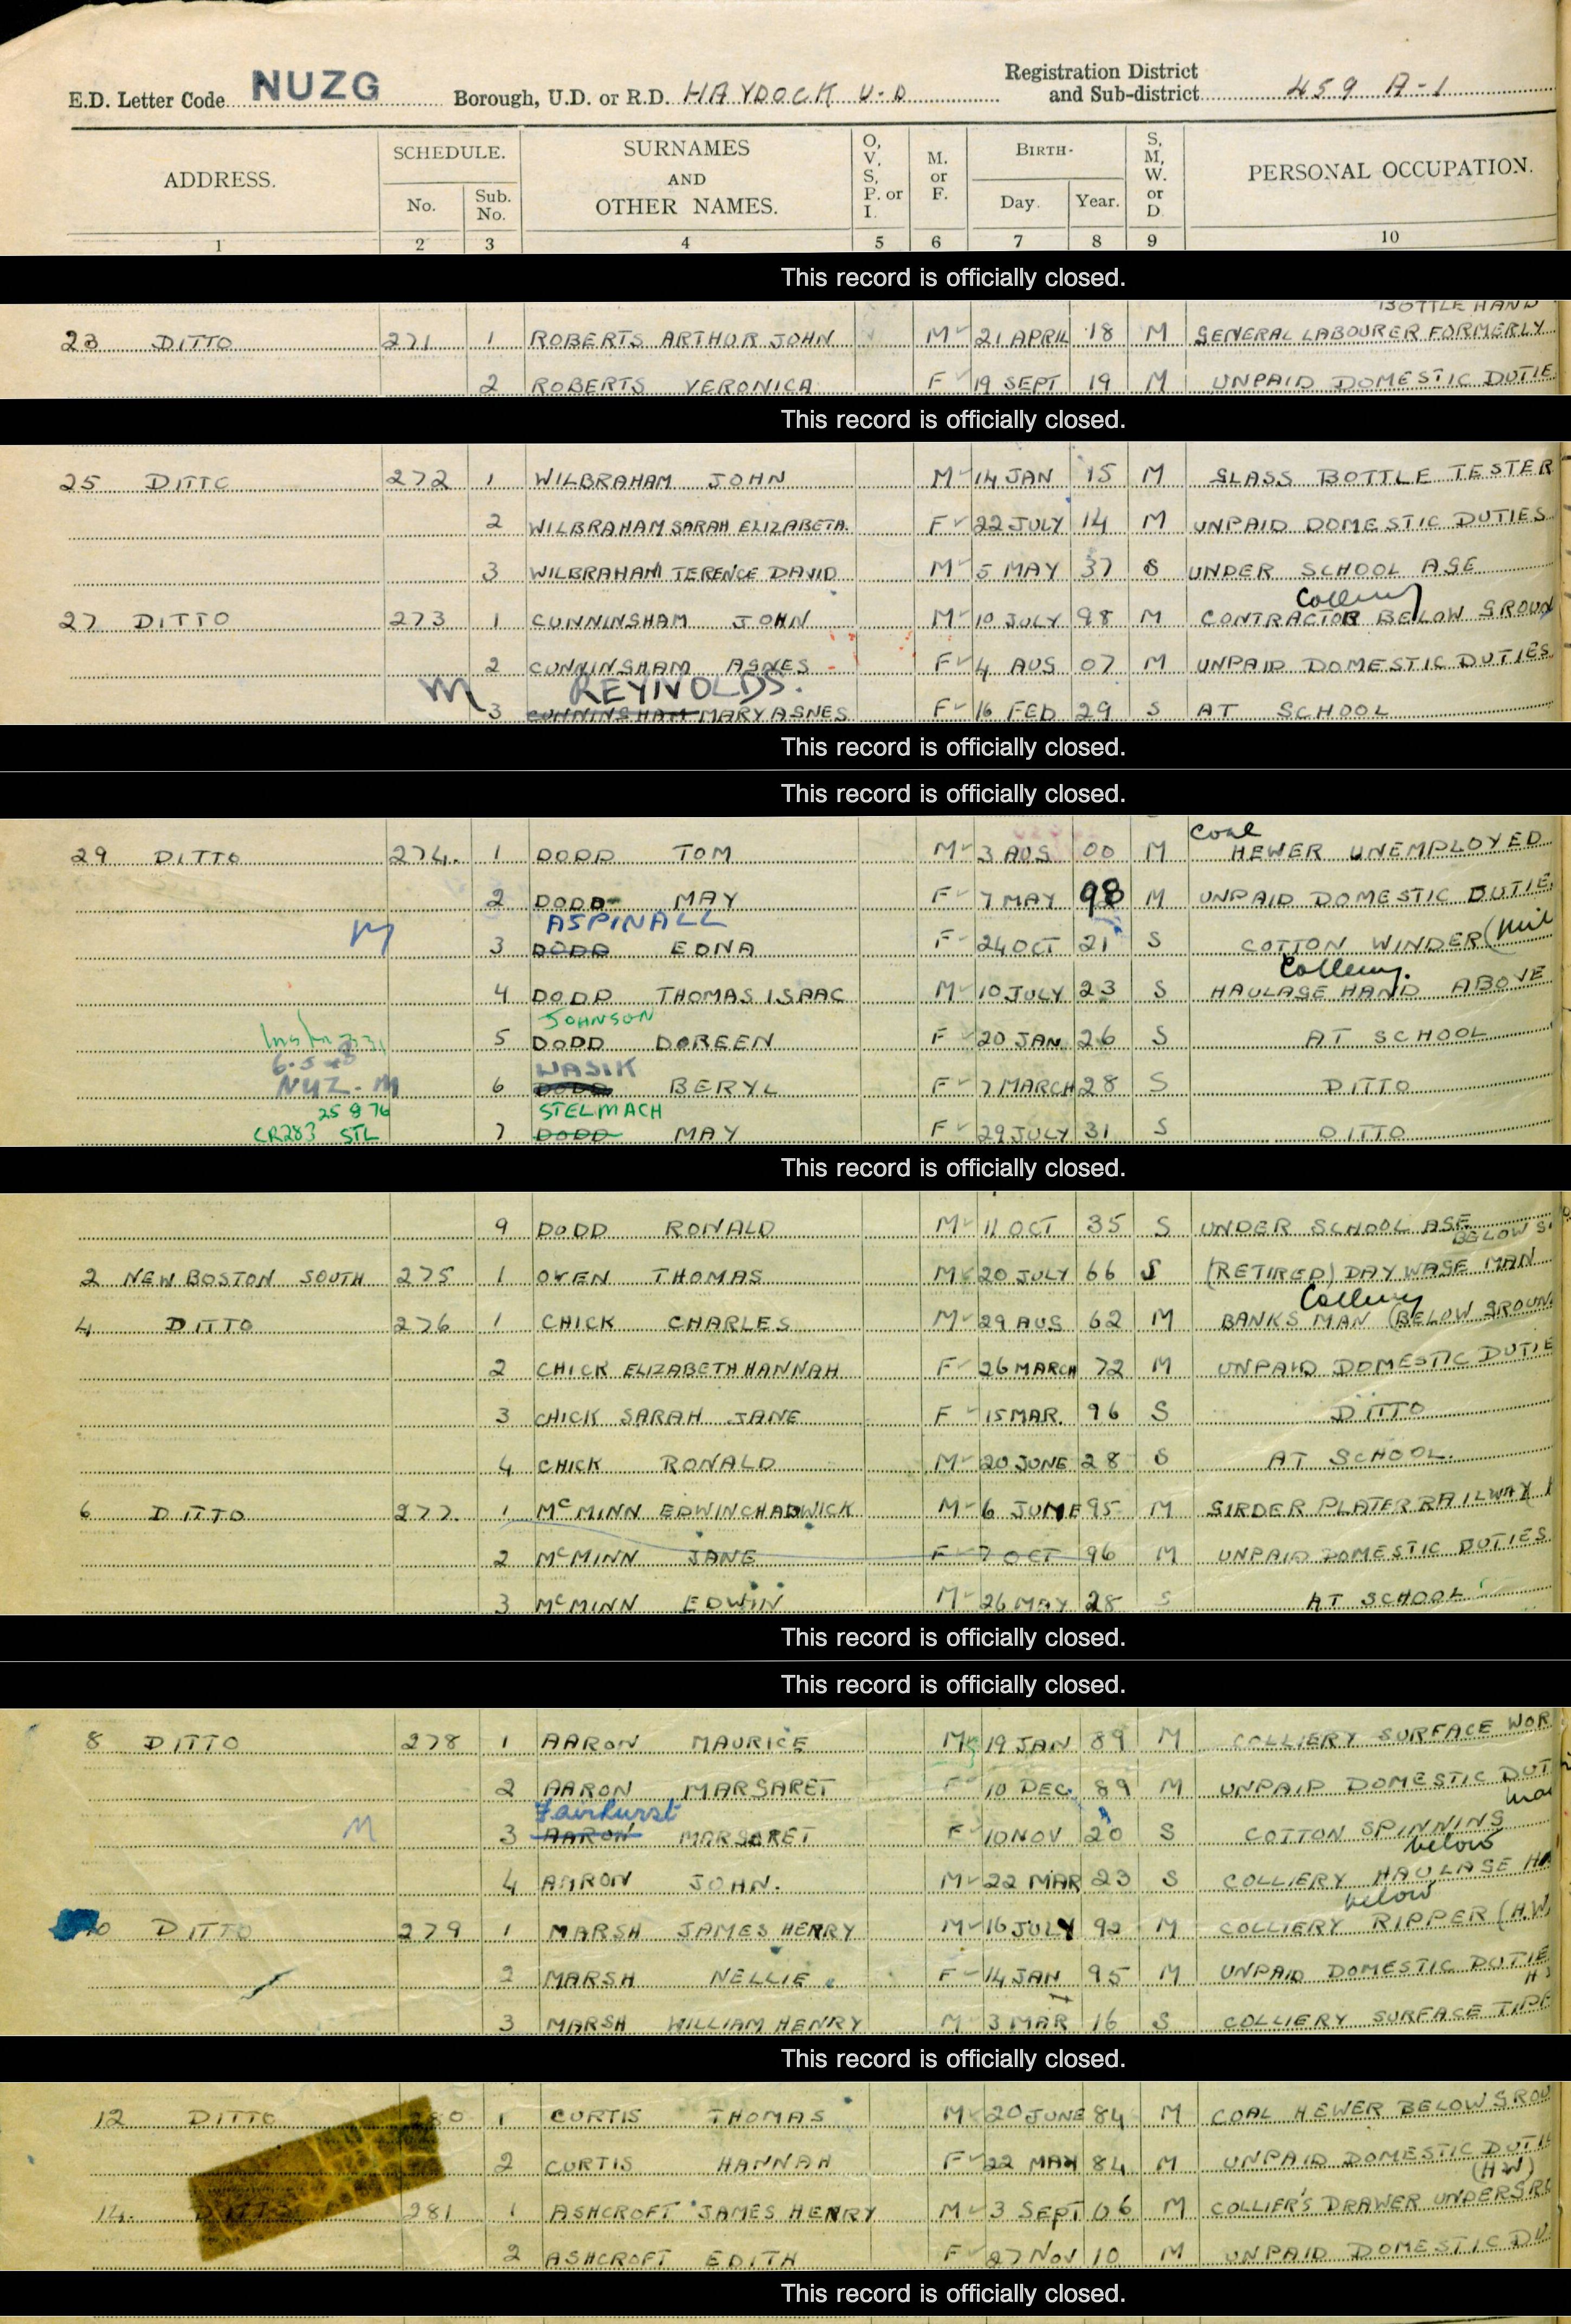 E.D. Letter Code NUZG Borough, U.D. or R.D. HAYDOCK U.D Registration District and Sub-district 459 A-1
ADDRESS. SCHEDULE. No. Sub. No. SURNAMES AND OTHER NAMES. O, V, S, P. or I. M. or F. BIRTH- Day. Year. S, M, W. or D. PERSONAL OCCUPATION.
1 2 3 4 5 6 7 8 9 10
This record is officially closed.
BOTTLE HAND
23 DITTO 271 1 ROBERTS ARTHUR JOHN M 21 APRIL 18 M GENERAL LABOURER FORMERLY
2 ROBERTS VERONICA F 19 SEPT 19 M UNPAID DOMESTIC DUTIE
This record is officially closed.
25 DITTO 272 1 WILBRAHAM JOHN M 14 JAN 15 M GLASS BOTTLE TESTER
2 WILBRAHAM SARAH ELIZABETA. F 22 JULY 14 M UNPAID DOMESTIC DUTIES
3 WILBRAHAM TERENCE DAVID M 5 MAY 37 S UNDER SCHOOL AGE
Colliery
27 DITTO 273 1 CUNNINGHAM JOHN M 10 JULY 98 M CONTRACTOR BELOW GROUN
2 CUNNINGHAM AGNES F 4 AUG 07 M UNPAID DOMESTIC DUTIES
M REYNOLDS.
3 CUNNINGHAM MARY AGNES F 16 FEB 29 S AT SCHOOL
This record is officially closed.
This record is officially closed.
Coal
29 DITTO 274. 1 DODD TOM M 3 AUG 00 M HEWER UNEMPLOYED
2 DODD MAY F 7 MAY 98 M UNPAID DOMESTIC DUTIE
ASPINALL
M 3 DODD EDNA F 24 OCT 21 S COTTON WINDER (Mil
Colliery.
4 DODD THOMAS ISAAC M 10 JULY 23 S HAULAGE HAND ABOVE
JOHNSON
5 DODD DOREEN F 20 JAN 26 S AT SCHOOL
WASIK
NUZ. M 6 DODD BERYL F 7 MARCH 28 S DITTO
25 8 76 STELMACH
CR283 STL 7 DODD MAY F 29 JULY 31 S DITTO
This record is officially closed.
9 DODD RONALD M 11 OCT 35 S UNDER SCHOOL AGE
BELOW
2 NEW BOSTON SOUTH 275 1 OVEN THOMAS M 20 JULY 66 S (RETIRED) DAY WAGE MAN
Colliery
4 DITTO 276 1 CHICK CHARLES M 29 AUG 62 M BANKS MAN (BELOW GROUN
2 CHICK ELIZABETH HANNAH F 26 MARCH 72 M UNPAID DOMESTIC DUTIE
3 CHICK SARAH JANE F 15 MAR. 96 S DITTO
4 CHICK RONALD M 20 JUNE 28 S AT SCHOOL.
6 DITTO 277. 1 McMINN EDWIN CHADWICK M 6 JUNE 95 M GIRDER PLATER RAILWAY
2 McMINN JANE F 7 OCT 96 M UNPAID DOMESTIC DUTIES
3 McMINN EDWIN M 26 MAY 28 S AT SCHOOL
This record is officially closed.
This record is officially closed.
8 DITTO 278 1 AARON MAURICE M 19 JAN 89 M COLLIERY SURFACE WOR
2 AARON MARGARET F 10 DEC. 89 M UNPAID DOMESTIC DUT
Fairhurst
M 3 AARON MARGARET F 10 NOV 20 S COTTON SPINNING
below
4 AARON JOHN. M 22 MAR 23 S COLLIERY HAULAGE HA
below
10 DITTO 279 1 MARSH JAMES HENRY M 16 JULY 92 M COLLIERY RIPPER (H.W.
2 MARSH NELLIE F 14 JAN 95 M UNPAID DOMESTIC DUTIE
3 MARSH WILLIAM HENRY M 3 MAR 16 S COLLIERY SURFACE TIPP
This record is officially closed.
12 DITTO 280 1 CURTIS THOMAS M 20 JUNE 84 M COAL HEWER BELOW GROU
2 CURTIS HANNAH F 22 MAY 84 M UNPAID DOMESTIC DUTIE
(HW)
14. DITTO 281 1 ASHCROFT JAMES HENRY M 3 SEPT 06 M COLLIER'S DRAWER UNDERGR
2 ASHCROFT EDITH F 27 NOV 10 M UNPAID DOMESTIC DU
This record is officially closed.